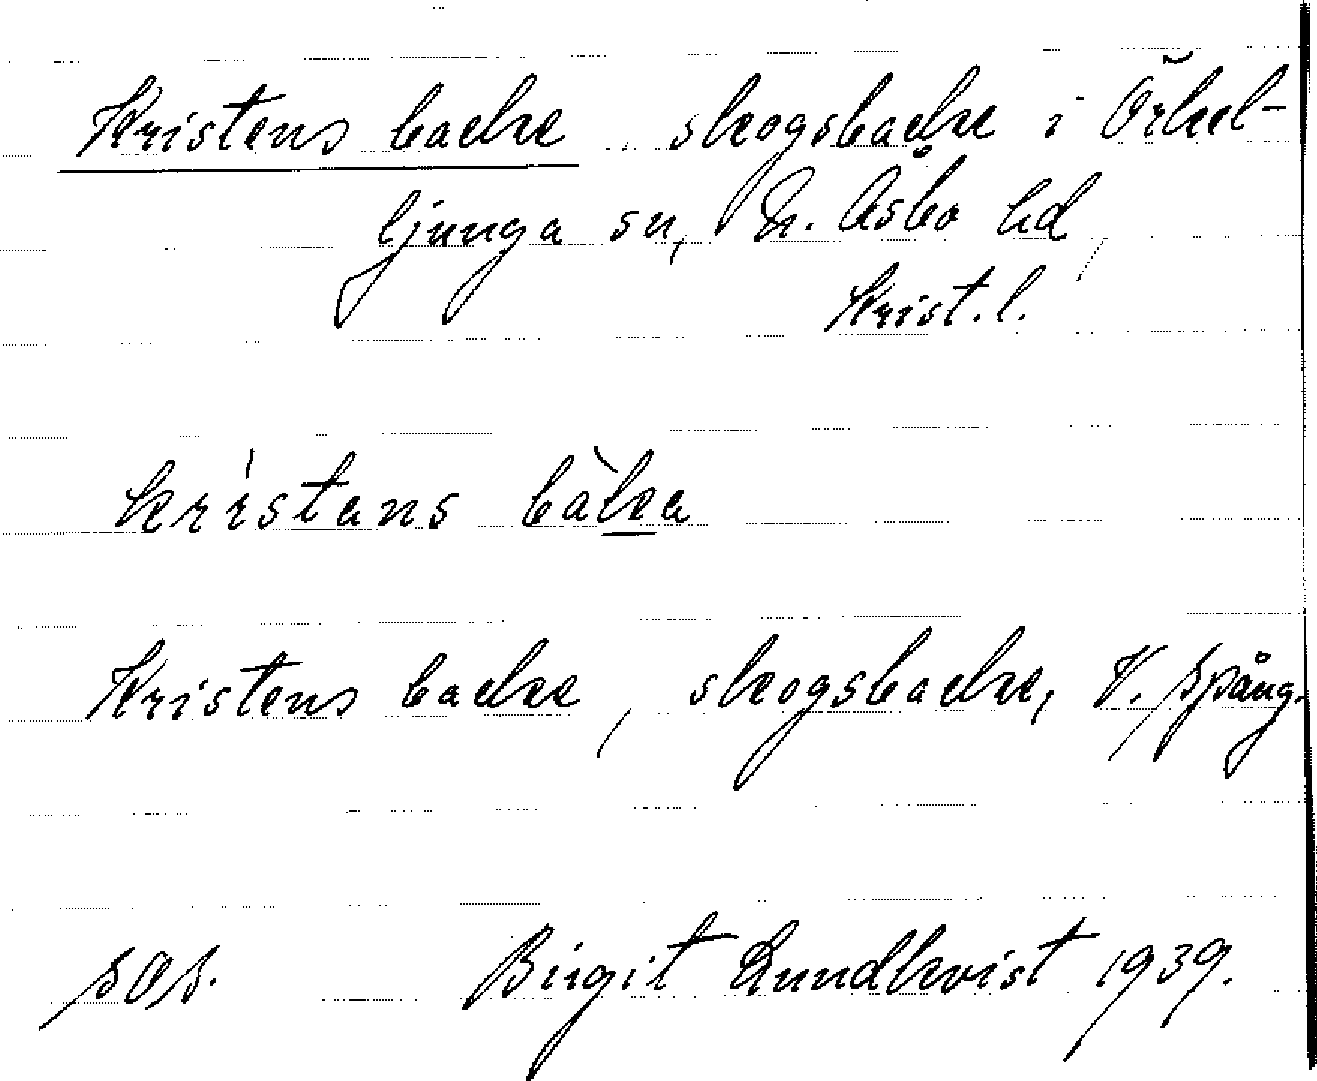 Kristens backe skogsbacke i Örkel-
ljunga sn, N. Åsbo hd
Krist. l.
kristans bàka
Kristens backe, skogsbacke, V. Spång.
SOS. Birgit Lundkvist 1939.